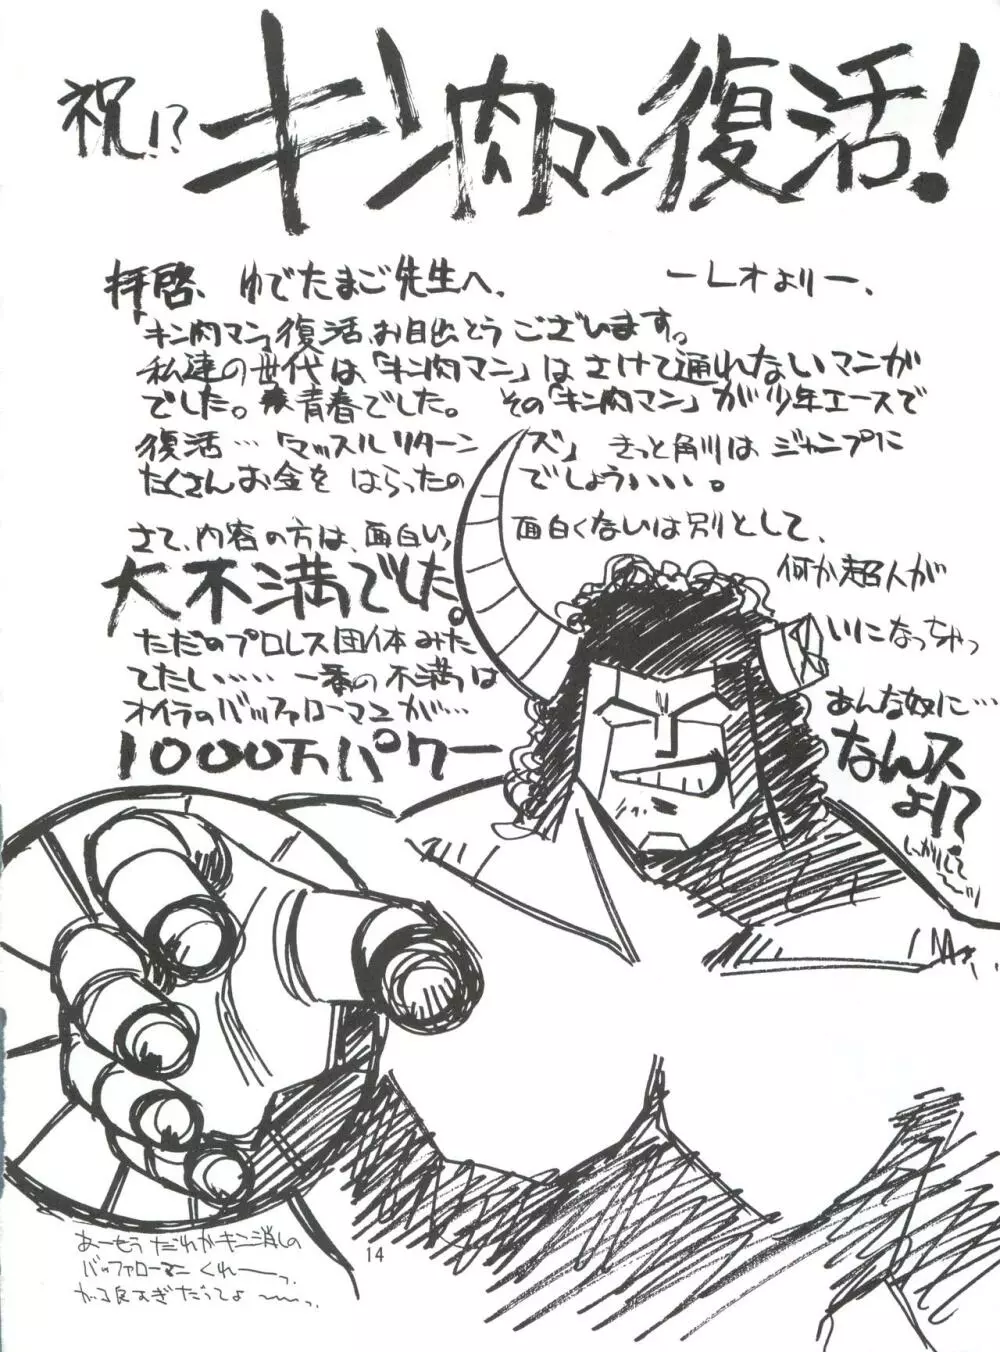 祝!?
キン肉マン復活!
拝啓、ゆでたまご先生へ、
ーLオよりー、
「キン肉マン」復活、お目出とうございます。
私達の世代は、「キン肉マン」はさけて通れないマンガ
でした。青春でした。その「キン肉マン」が少年エースで
復活…「マッスルリターンズ」きっと角川はジャンプに
たくさんお金をはらったのでしょういいい。
さて、内容の方は、面白い、面白くないは別として、
大不満でした。
何か超人が
ただのプロレス団体みたいになっちゃっ
てたし……一番の不満は
オイラのバッファローマンが…
あんな奴に…
1000万パワー
なんスよ!?
あーもうだれかキン消しの
バッファローマンくれーっ、
14